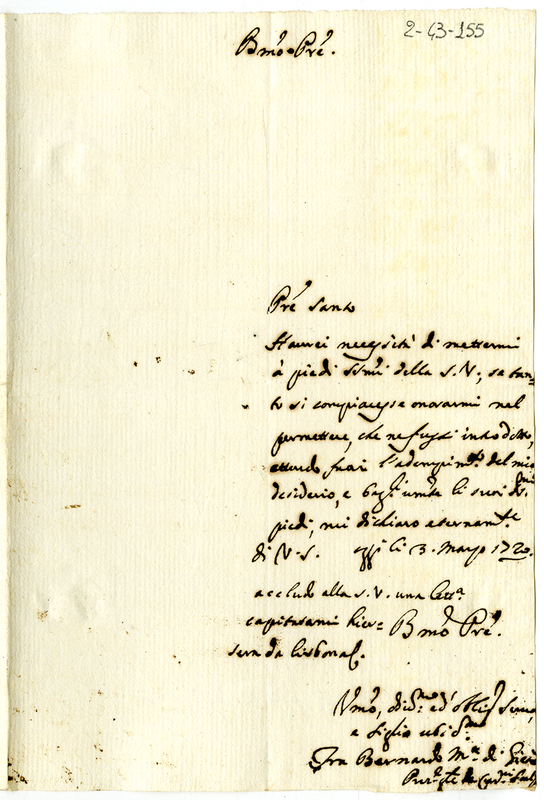 2-43-155
Bmo Pre.
Pre santo
Haurei necessità di mettermi
à piedi ssmi della S.V., se tan=
to si compiacesse onorarmi nel
permettere, che ne fussi introdotto,
attendo l'adempimto del mio
desiderio, e umte li suoi ssmi
piedi, mi dichiaro eternamte
di V.S. oggi li 3. Marzo 172
accludo alla S.V. una lettra
capitatami hier=
sera da lisbona.
Bmo Pre.
Vmo, ed obligmo
e figlio ubidmo
Fra Bernardo Ma di